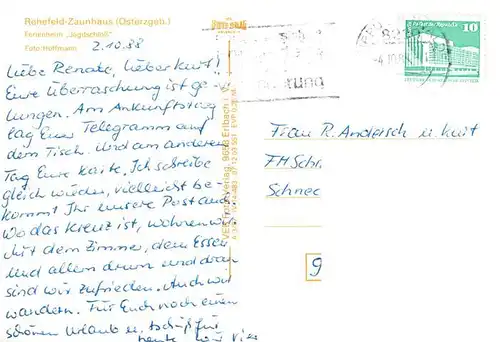 Rehefeld-Zaunhaus (Osterzgeb.)
Ferienheim „Jagdschloß"
Foto: Hoffmann
2.10.88
Liebe Renate, lieber Kurt!
Eure Überraschung ist ge-
lungen. Am Ankunftstag
lag Euer Telegramm auf
dem Tisch. Und am anderen
Tag Eure Karte. Ich schreibe
gleich wieder, vielleicht be-
kommt Ihr unsere Post auch.
Wo das Kreuz ist, wohnen wir.
Mit dem Zimmer, dem Essen
und allem drum und dran
sind wir zufrieden. Auch wir
wandern. Für Euch noch einen
schönen Urlaub u. tschüß für
heute
VEB Foto-Verlag 9658 Erlbach
10
Frau R. Andersch u. Kurt
FH Schr.
Schnee
9